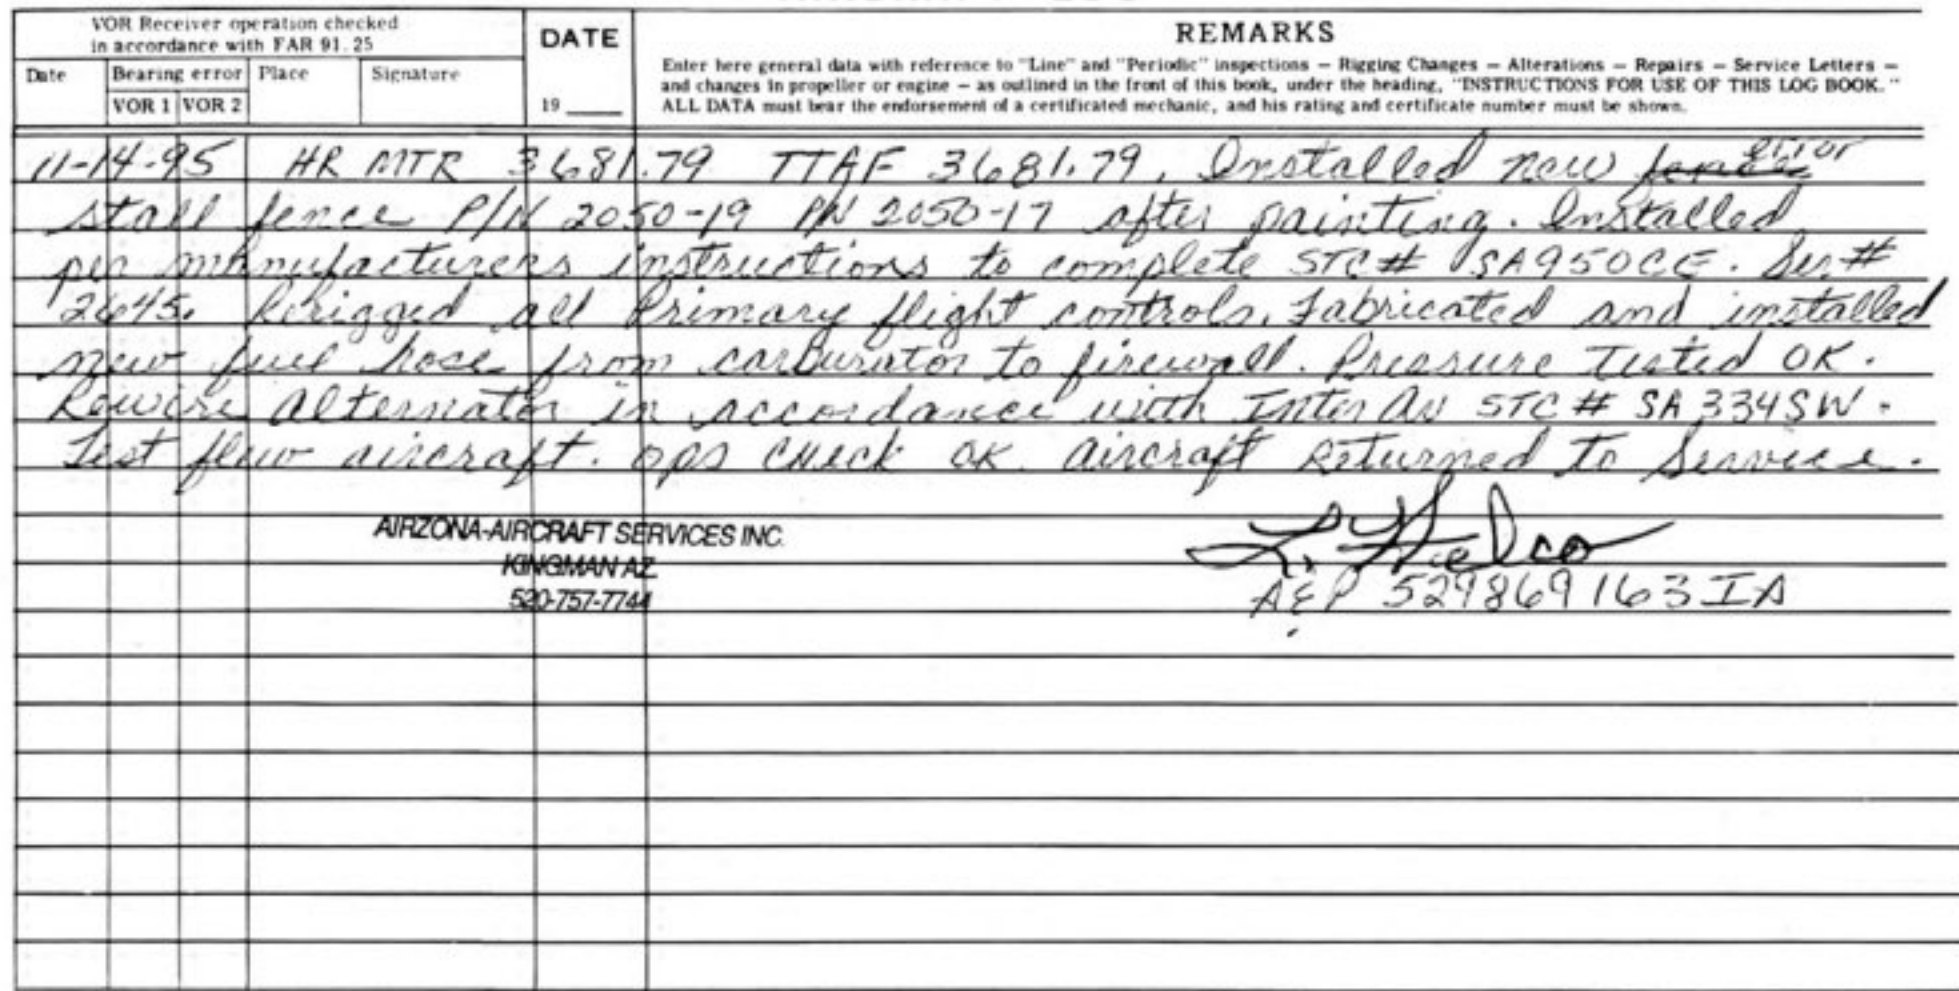 VOR Receiver operation checked
in accordance with FAR 91.25
Date
Bearing error
VOR 1 VOR 2
Place
Signature
DATE
19 ____
REMARKS
Enter here general data with reference to "Line" and "Periodic" inspections — Rigging Changes — Alterations — Repairs — Service Letters —
and changes in propeller or engine — as outlined in the front of this book, under the heading, "INSTRUCTIONS FOR USE OF THIS LOG BOOK."
ALL DATA must bear the endorsement of a certificated mechanic, and his rating and certificate number must be shown.
error
11-14-95 HR MTR 3681.79 TTAF 3681.79. Installed new
stall fence P/N 2050-19 PN 2050-17 after painting. Installed
per manufacturers instructions to complete STC# SA950CE. Ser#
2645. Rerigged all Primary flight controls. Fabricated and installed
new fuel hose from carburator to firewall. Pressure Tested OK.
Rewire alternator in accordance with Inter Av STC # SA334SW.
Test flew aircraft. ops check OK. aircraft Returned to Service.
AIRZONA-AIRCRAFT SERVICES INC.
KINGMAN AZ
520-757-7744
A&P 529869163 IA